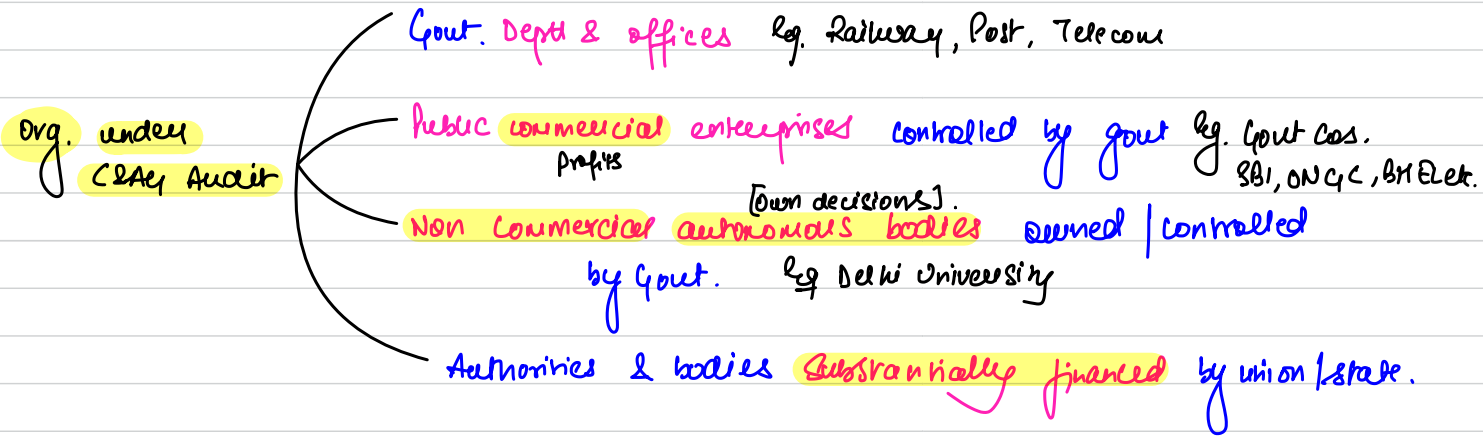 Govt. Deptt & offices eg. Railway, Post, Telecom
Org. under
C&AG Audit
Public commercial enterprises controlled by govt eg. Govt Cos.
Profits
SBI, ONGC, BHEL etc.
[Own decisions].
Non Commercial autonomous bodies owned / controlled
by Govt. eg Delhi University
Authorities & bodies Substantially financed by union / state.